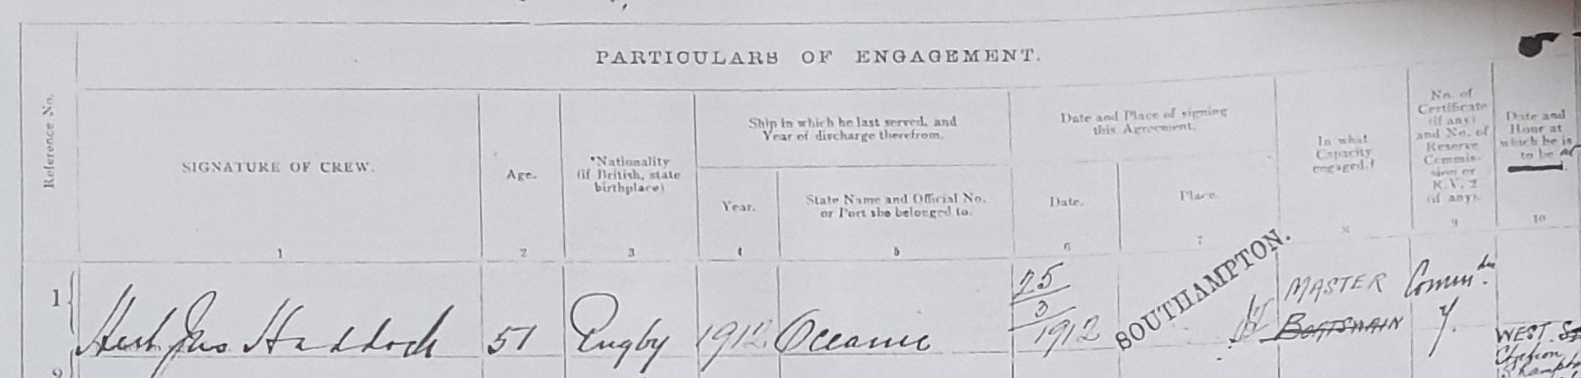 PARTICULARS OF ENGAGEMENT.
Reference No.
SIGNATURE OF CREW.
Age.
*Nationality
(if British, state
birthplace)
Ship in which he last served, and
Year of discharge therefrom.
Year.
State Name and Official No.
or Port she belonged to.
Date and Place of signing
this Agreement.
Date.
Place.
In what
Capacity
engaged.†
No. of
Certificate
(if any)
and No. of
Reserve
Commis-
sion or
R.V. 2
(if any).
Date and
Hour at
which he is
to be
1 2 3 4 5 6 7 8 9 10
1
Herbt Jas Haddock
51
Rugby
1912
Oceanic
25
3
1912
SOUTHAMPTON.
MASTER
BOATSWAIN
Commdr.
WEST
2